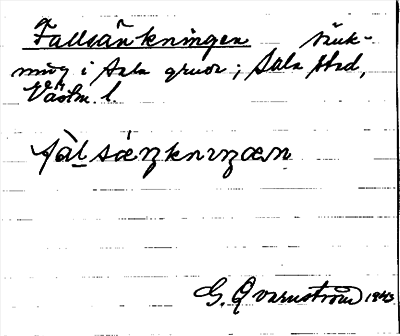 Fallsänkningen sänk-
ning i Sala gruva; Sala stad,
Västm. l.
fàlsæŋknɪŋæn
G. Qvarnström 1943